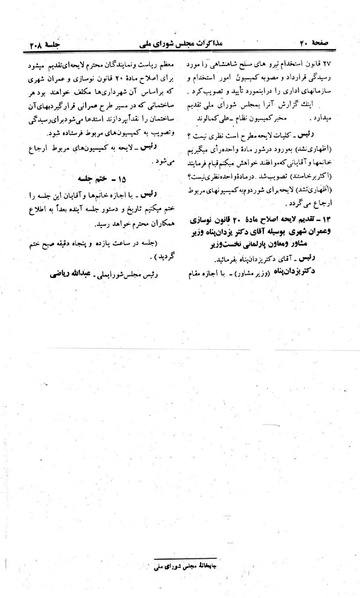 صفحهٔ ۲۰
مذاکرات مجلس شورای ملی
جلسهٔ ۲۰۸
۲۷ قانون استخدام نیروهای مسلح شاهنشاهی را مورد
رسیدگی قرارداد و مصوبه کمیسیون امور استخدام و
سازمانهای اداری را دراینمورد تأیید و تصویب کرد.
اینك گزارش آنرا بمجلس شورای ملی تقدیم
میدارد.
مخبر کمیسیون نظام ـ علی کمالوند
رئیس ـ کلیات لایحه مطرح است نظری نیست ؟
(اظهاری نشد) بهورود درشور مادهٔ واحده رأی میگیریم
خانمها و آقایانی که موافقند خواهش میکنم قیام فرمایند
(اکثر برخاستند) تصویب شد. درمادهٔ واحده نظری نیست؟
(اظهاری نشد) لایحه برای شور دوم به کمیسیونهای مربوط
ارجاع می گردد.
۱۴ ـ تقدیم لایحه اصلاح مادهٔ ۲۰ قانون نوسازی
وعمران شهری بوسیله آقای دکتر یزدان‌پناه وزیر
مشاور ومعاون پارلمانی نخست‌وزیر
رئیس ـ آقای دکتر یزدان‌پناه بفرمائید.
دکتر یزدان‌پناه (وزیر مشاور) ـ با اجازه مقام
معظم ریاست و نمایندگان محترم لایحه‌ای تقدیم میشود
برای اصلاح مادهٔ ۲۰ قانون نوسازی و عمران شهری
که براساس آن شهرداری‌ها مکلف خواهند بود هر
ساختمانی که در مسیر طرح عمرانی قرار گیرد بهای آن
ساختمان را نقداً بپردازند استدعا می‌شود برای رسیدگی
وتصویب به کمیسیون‌های مربوط فرستاده شود.
رئیس ـ لایحه به کمیسیون‌های مربوط ارجاع
می‌شود.
۱۵ ـ ختم جلسه
رئیس ـ با اجازه خانم‌ها و آقایان این جلسه را
ختم میکنیم تاریخ و دستور جلسه آینده بعداً به اطلاع
همکاران محترم خواهد رسید.
(جلسه در ساعت یازده و پنجاه دقیقه صبح ختم
گردید).
رئیس مجلس شورایملی ـ عبدالله ریاضی
چاپخانهٔ مجلس شورای ملی